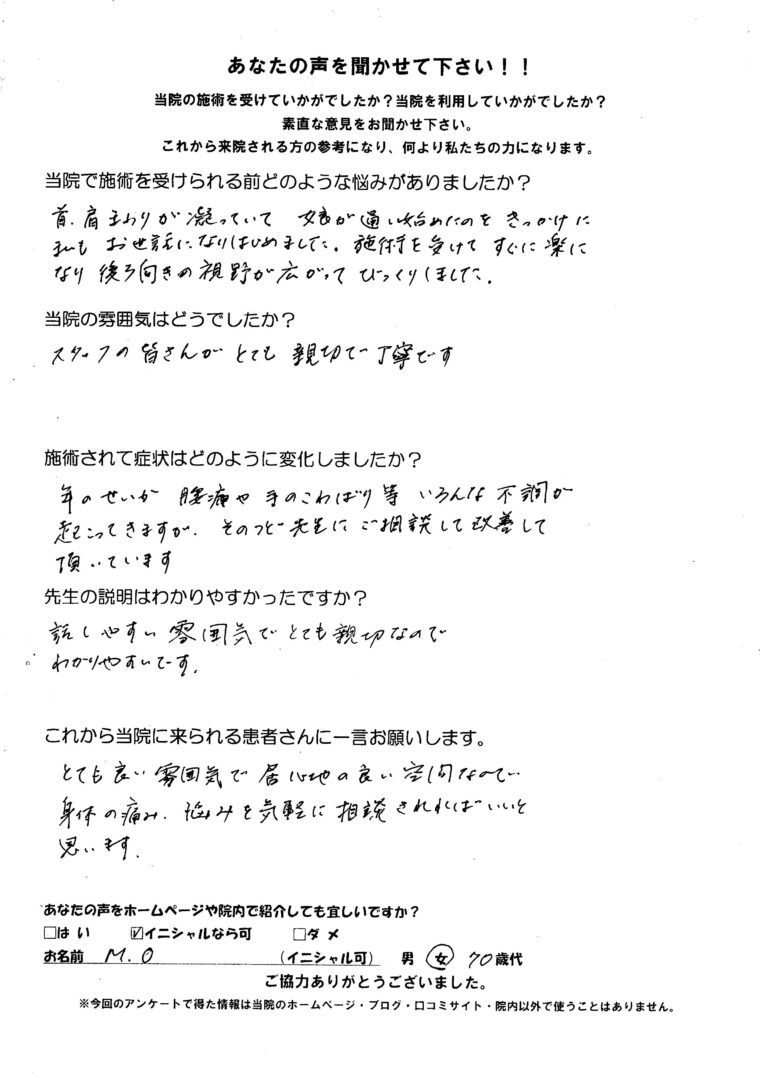 あなたの声を聞かせて下さい！！
当院の施術を受けていかがでしたか？当院を利用していかがでしたか？
素直な意見をお聞かせ下さい。
これから来院される方の参考になり、何より私たちの力になります。
当院で施術を受けられる前どのような悩みがありましたか？
首、肩まわりが凝っていて 娘が通い始めたのを きっかけに
私も お世話になりはじめました。施術を受けて すぐに楽に
なり 後ろ向きの視野が広がって びっくりしました。
当院の雰囲気はどうでしたか？
スタッフの皆さんが とても 親切で 丁寧です
施術されて症状はどのように変化しましたか？
年のせいか 腰痛や 手のこわばり等 いろんな 不調が
起こってきますが、そのつど先生に ご相談して改善して
頂いています
先生の説明はわかりやすかったですか？
話しやすい 雰囲気で とても親切なので
わかりやすいです。
これから当院に来られる患者さんに一言お願いします。
とても良い 雰囲気で 居心地の良い 空間なので
身体の痛み、悩みを気軽に 相談されればいいと
思います。
あなたの声をホームページや院内で紹介しても宜しいですか？
□はい ☑イニシャルなら可 □ダメ
お名前 M.O (イニシャル可) 男 女 70歳代
ご協力ありがとうございました。
※今回のアンケートで得た情報は当院のホームページ・ブログ・口コミサイト・院内以外で使うことはありません。